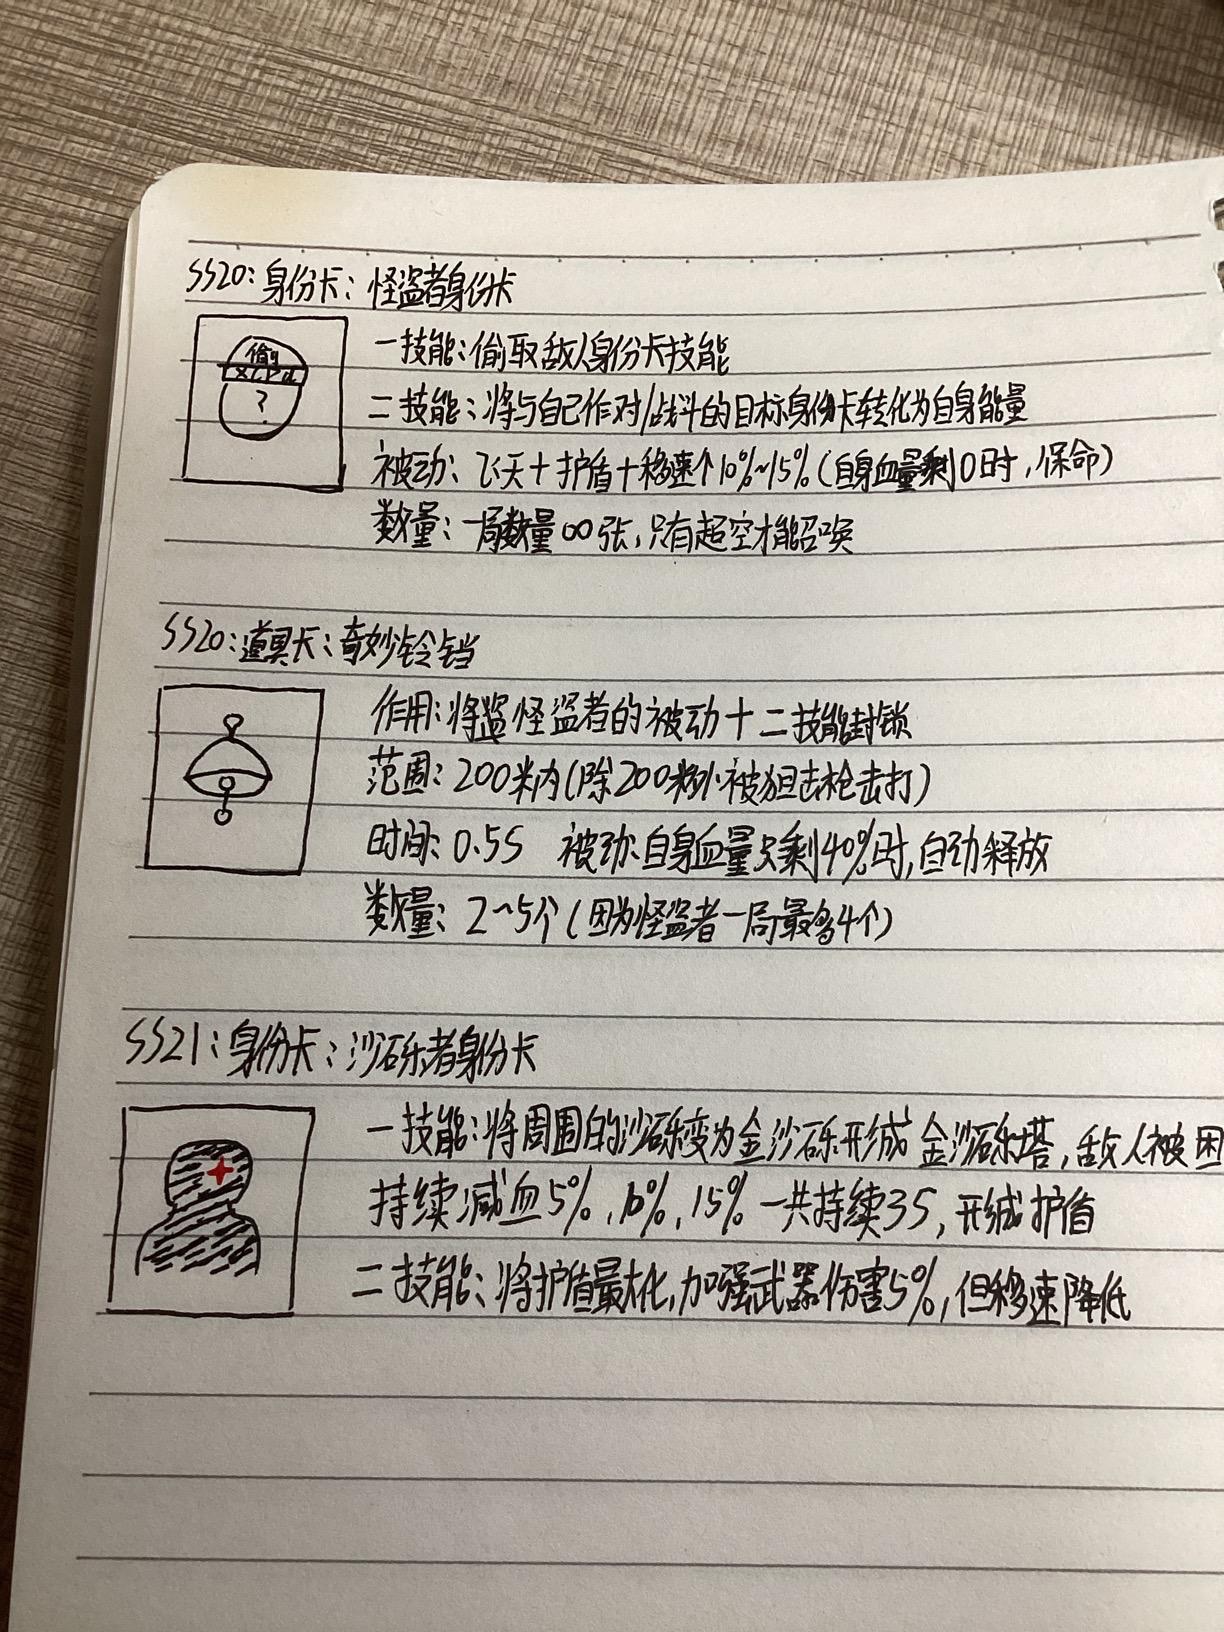 SS20：身份卡：怪盗者身份卡
偷
？
一技能：偷取敌人身份卡技能
二技能：将与自己作对/战斗的目标身份卡转化为自身能量
被动：飞天+护盾+移速个10%~15%（自身血量剩0时，保命）
数量：一局数量∞张，只有超空才能召唤
SS20：道具卡：奇妙铃铛
作用：将怪盗者的被动+二技能封锁
范围：200米内（除200米外被狙击枪击打）
时间：0.5S 被动：自身血量只剩40%时，自动释放
数量：2~5个（因为怪盗者一局最多4个）
SS21：身份卡：沙砾者身份卡
一技能：将周围的沙砾变为金沙砾形成金沙砾塔，敌人被困
持续减血5%、10%、15%一共持续3S，形成护盾
二技能：将护盾最大化，加强武器伤害5%，但移速降低